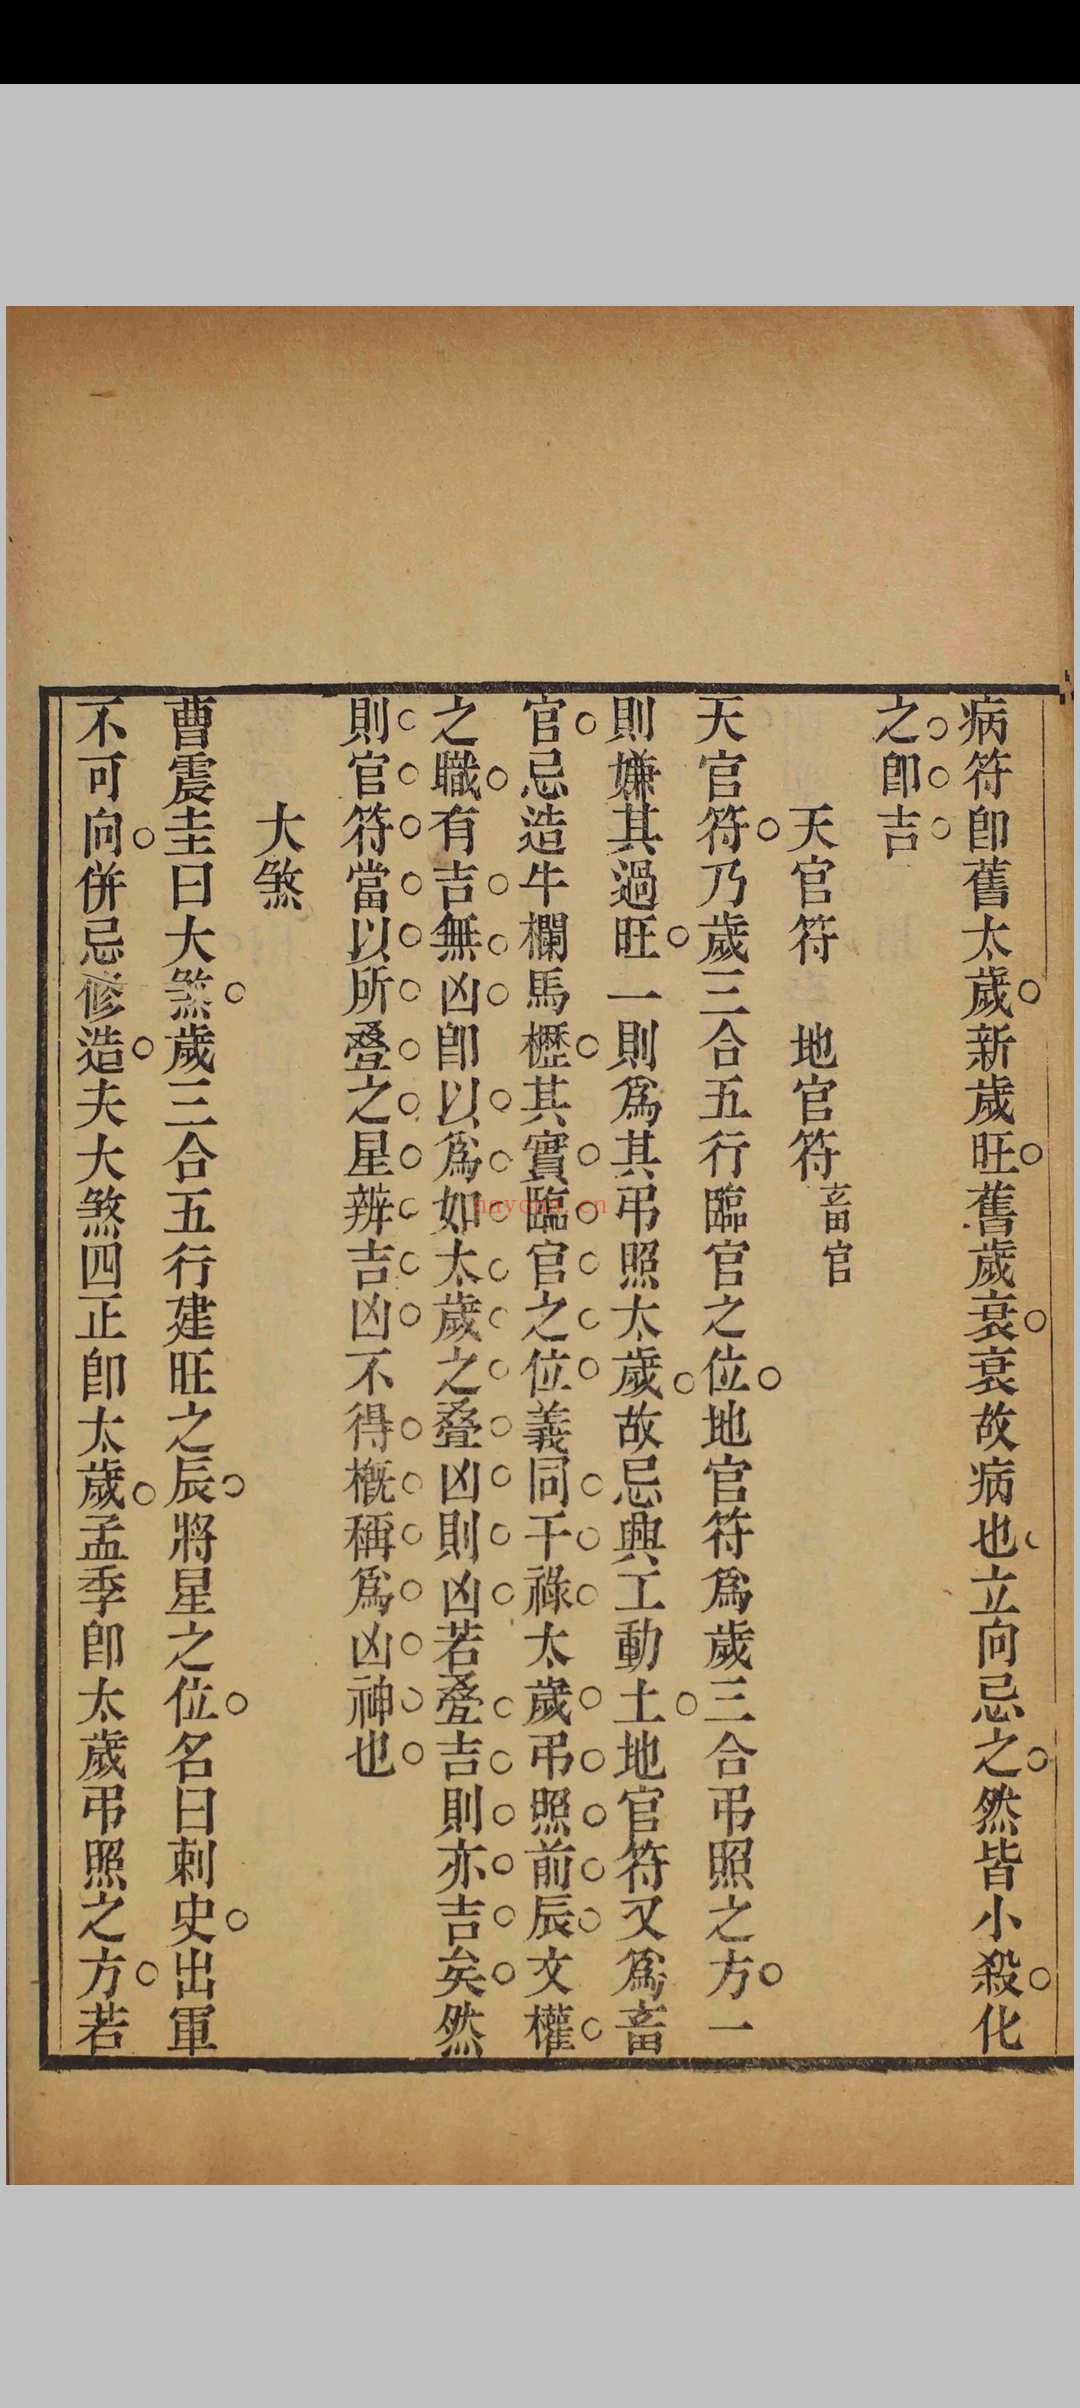 病符卽舊太歲新歲旺舊歲衰衰故病也立向忌之然皆小殺化
之卽吉
天官符　地官符 畜官
天官符乃歲三合五行臨官之位地官符爲歲三合弔照之方一
則嫌其過旺一則爲其弔照太歲故忌興工動土地官符又爲畜
官忌造牛欄馬櫪其實臨官之位義同干祿太歲弔照前辰文權
之職有吉無凶卽以爲如太歲之叠凶則凶若叠吉則亦吉矣然
則官符當以所叠之星辨吉凶不得概稱爲凶神也
大煞
曹震圭曰大煞歲三合五行建旺之辰將星之位名曰刺史出軍
不可向併忌修造夫大煞四正卽太歲孟季卽太歲弔照之方若
nayona.cn